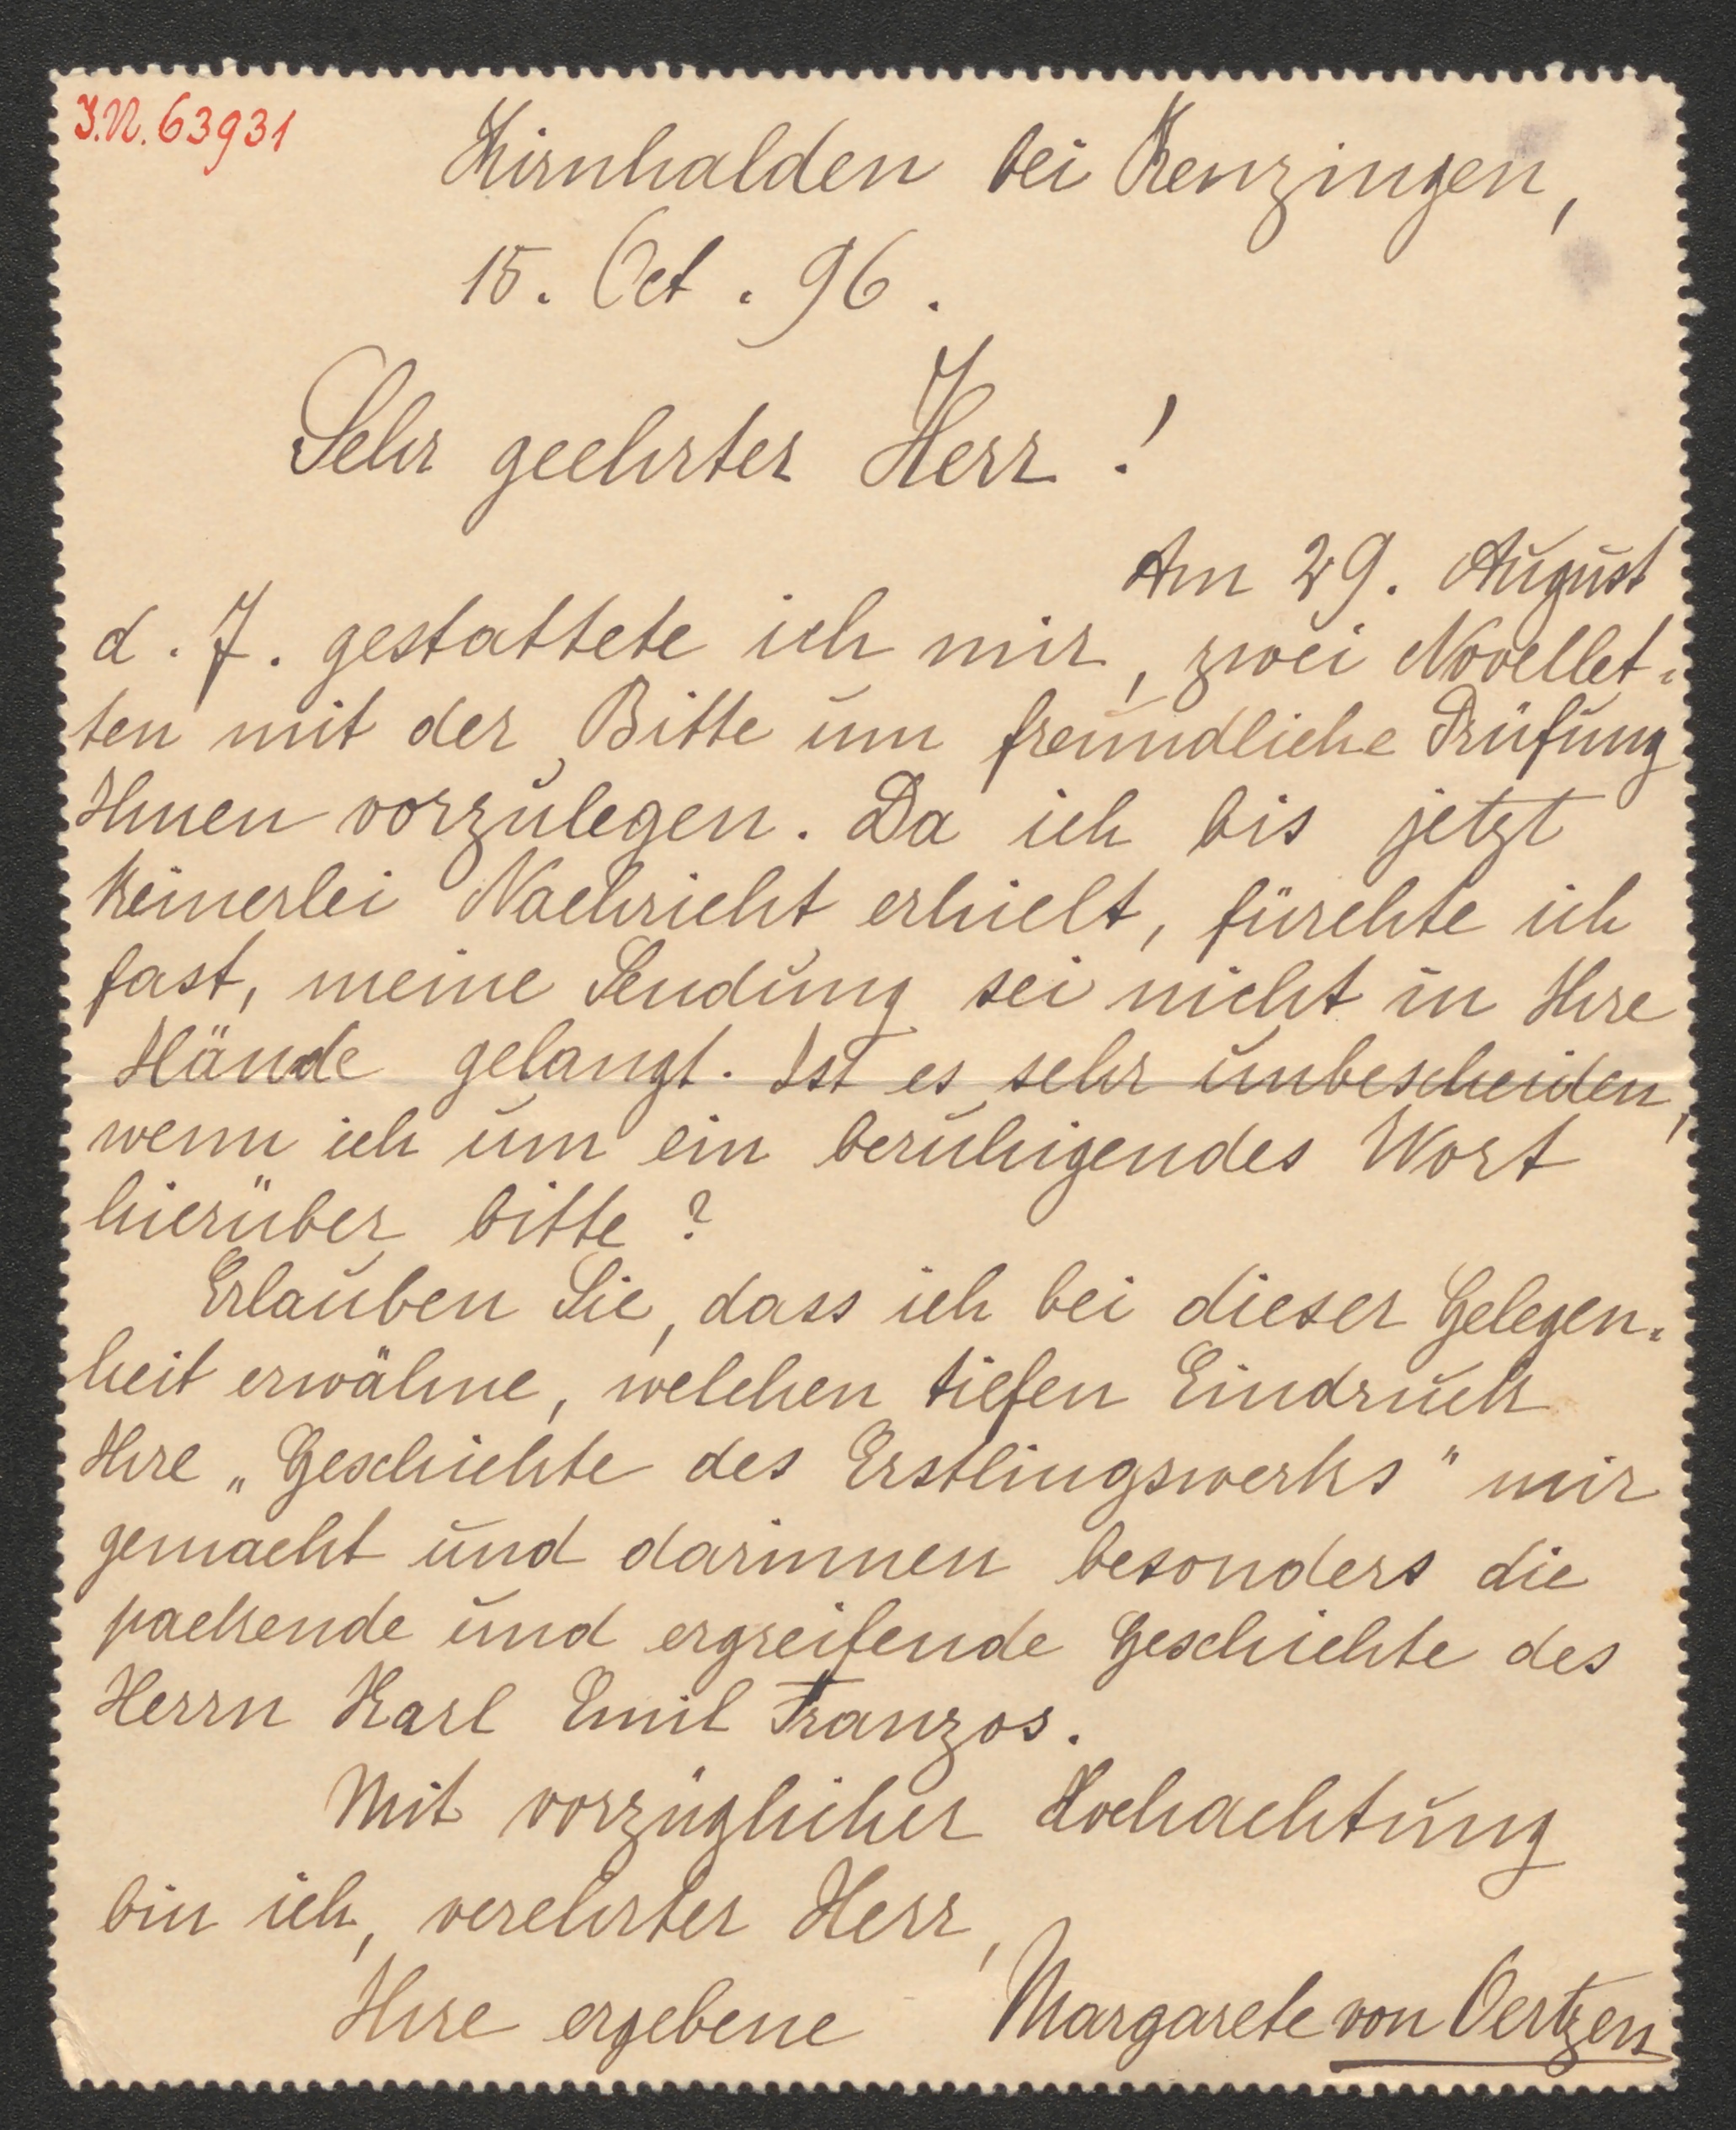 I.N. 63931
Kirnhalden bei Kenzingen,
15. Oct. 96.
Sehr geehrter Herr!
Am 29. August
d. J. gestattete ich mir, zwei Novellet-
ten mit der Bitte um freundliche Prüfung
Ihnen vorzulegen. Da ich bis jetzt
keinerlei Nachricht erhielt, fürchte ich
fast, meine Sendung sei nicht in Ihre
Hände gelangt. Ist es sehr unbescheiden,
wenn ich um ein beruhigendes Wort
hierüber bitte?
Erlauben Sie, dass ich bei dieser Gelegen-
heit erwähne, welchen tiefen Eindruck
Ihre „Geschichte des Erstlingswerks" mir
gemacht und darinnen besonders die
packende und ergreifende Geschichte des
Herrn Karl Emil Franzos.
Mit vorzüglicher Hochachtung
bin ich, verehrter Herr,
Ihre ergebene Margarete von Oertzen